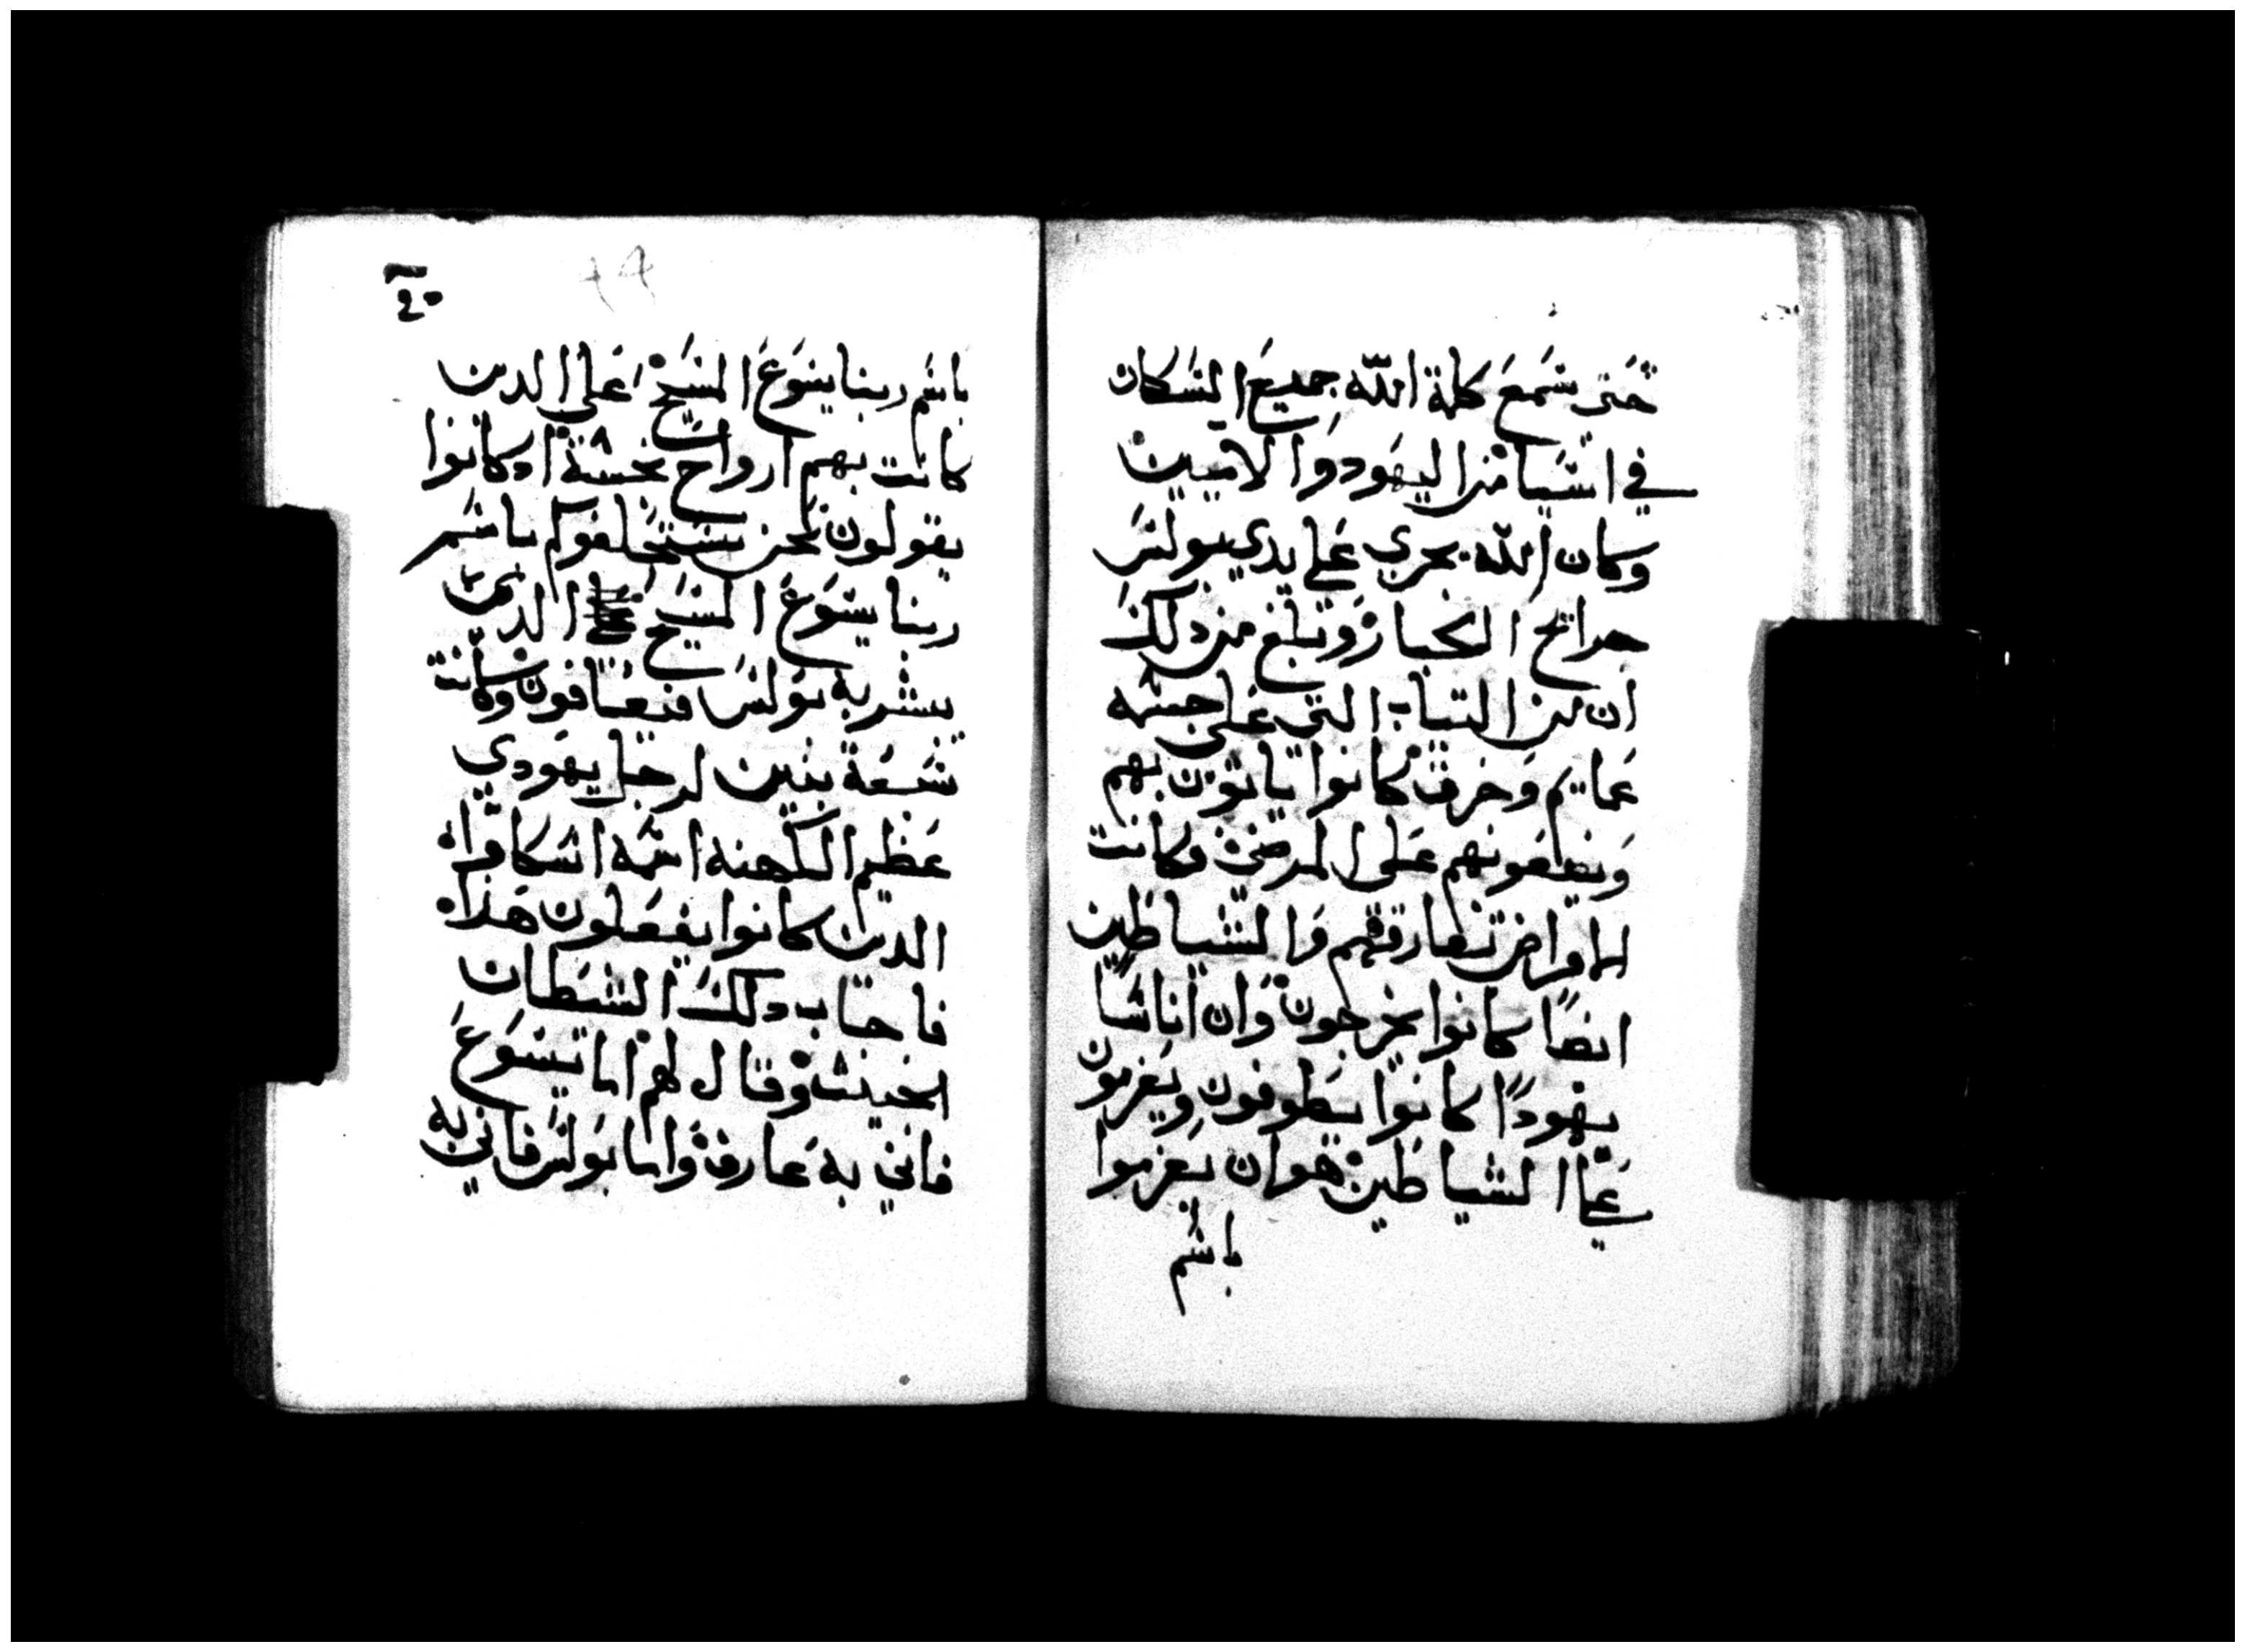 حتى سمع كلمة الله جميع السكان
في اسيا من اليهود والاميين
وكان الله يجري على يدي بولس
جرايح الكبار وتبلغ من ذلك
ان من التياب التي على جسمه
عمايم وخرق كانوا ياتون بهم
ويضعونهم على المرضى فكانت
الامراض تفارقهم والشياطين
ايضًا كانوا يخرجون وان اناسًا
يهودًا كانوا يطوفون ويعزمون
على الشياطين هوان يعزموا
باسم
باسم ربنا يسوع المسيح على الدين
كانت بهم ارواح نجسة اد كانوا
يقولون نحن نستحلفوكم باسم
ربنا يسوع المسيح الذي
يبشر به بولس فيعافون وكانت
سبعة بنين لرجل يهودي
عظيم الكهنه اسمه اسكاوا
الدين كانوا يفعلون هذا
فاجاب دلك الشطان
الخبيث وقال لهم اما يسوع
فاني به عارف واما بولس فاني به